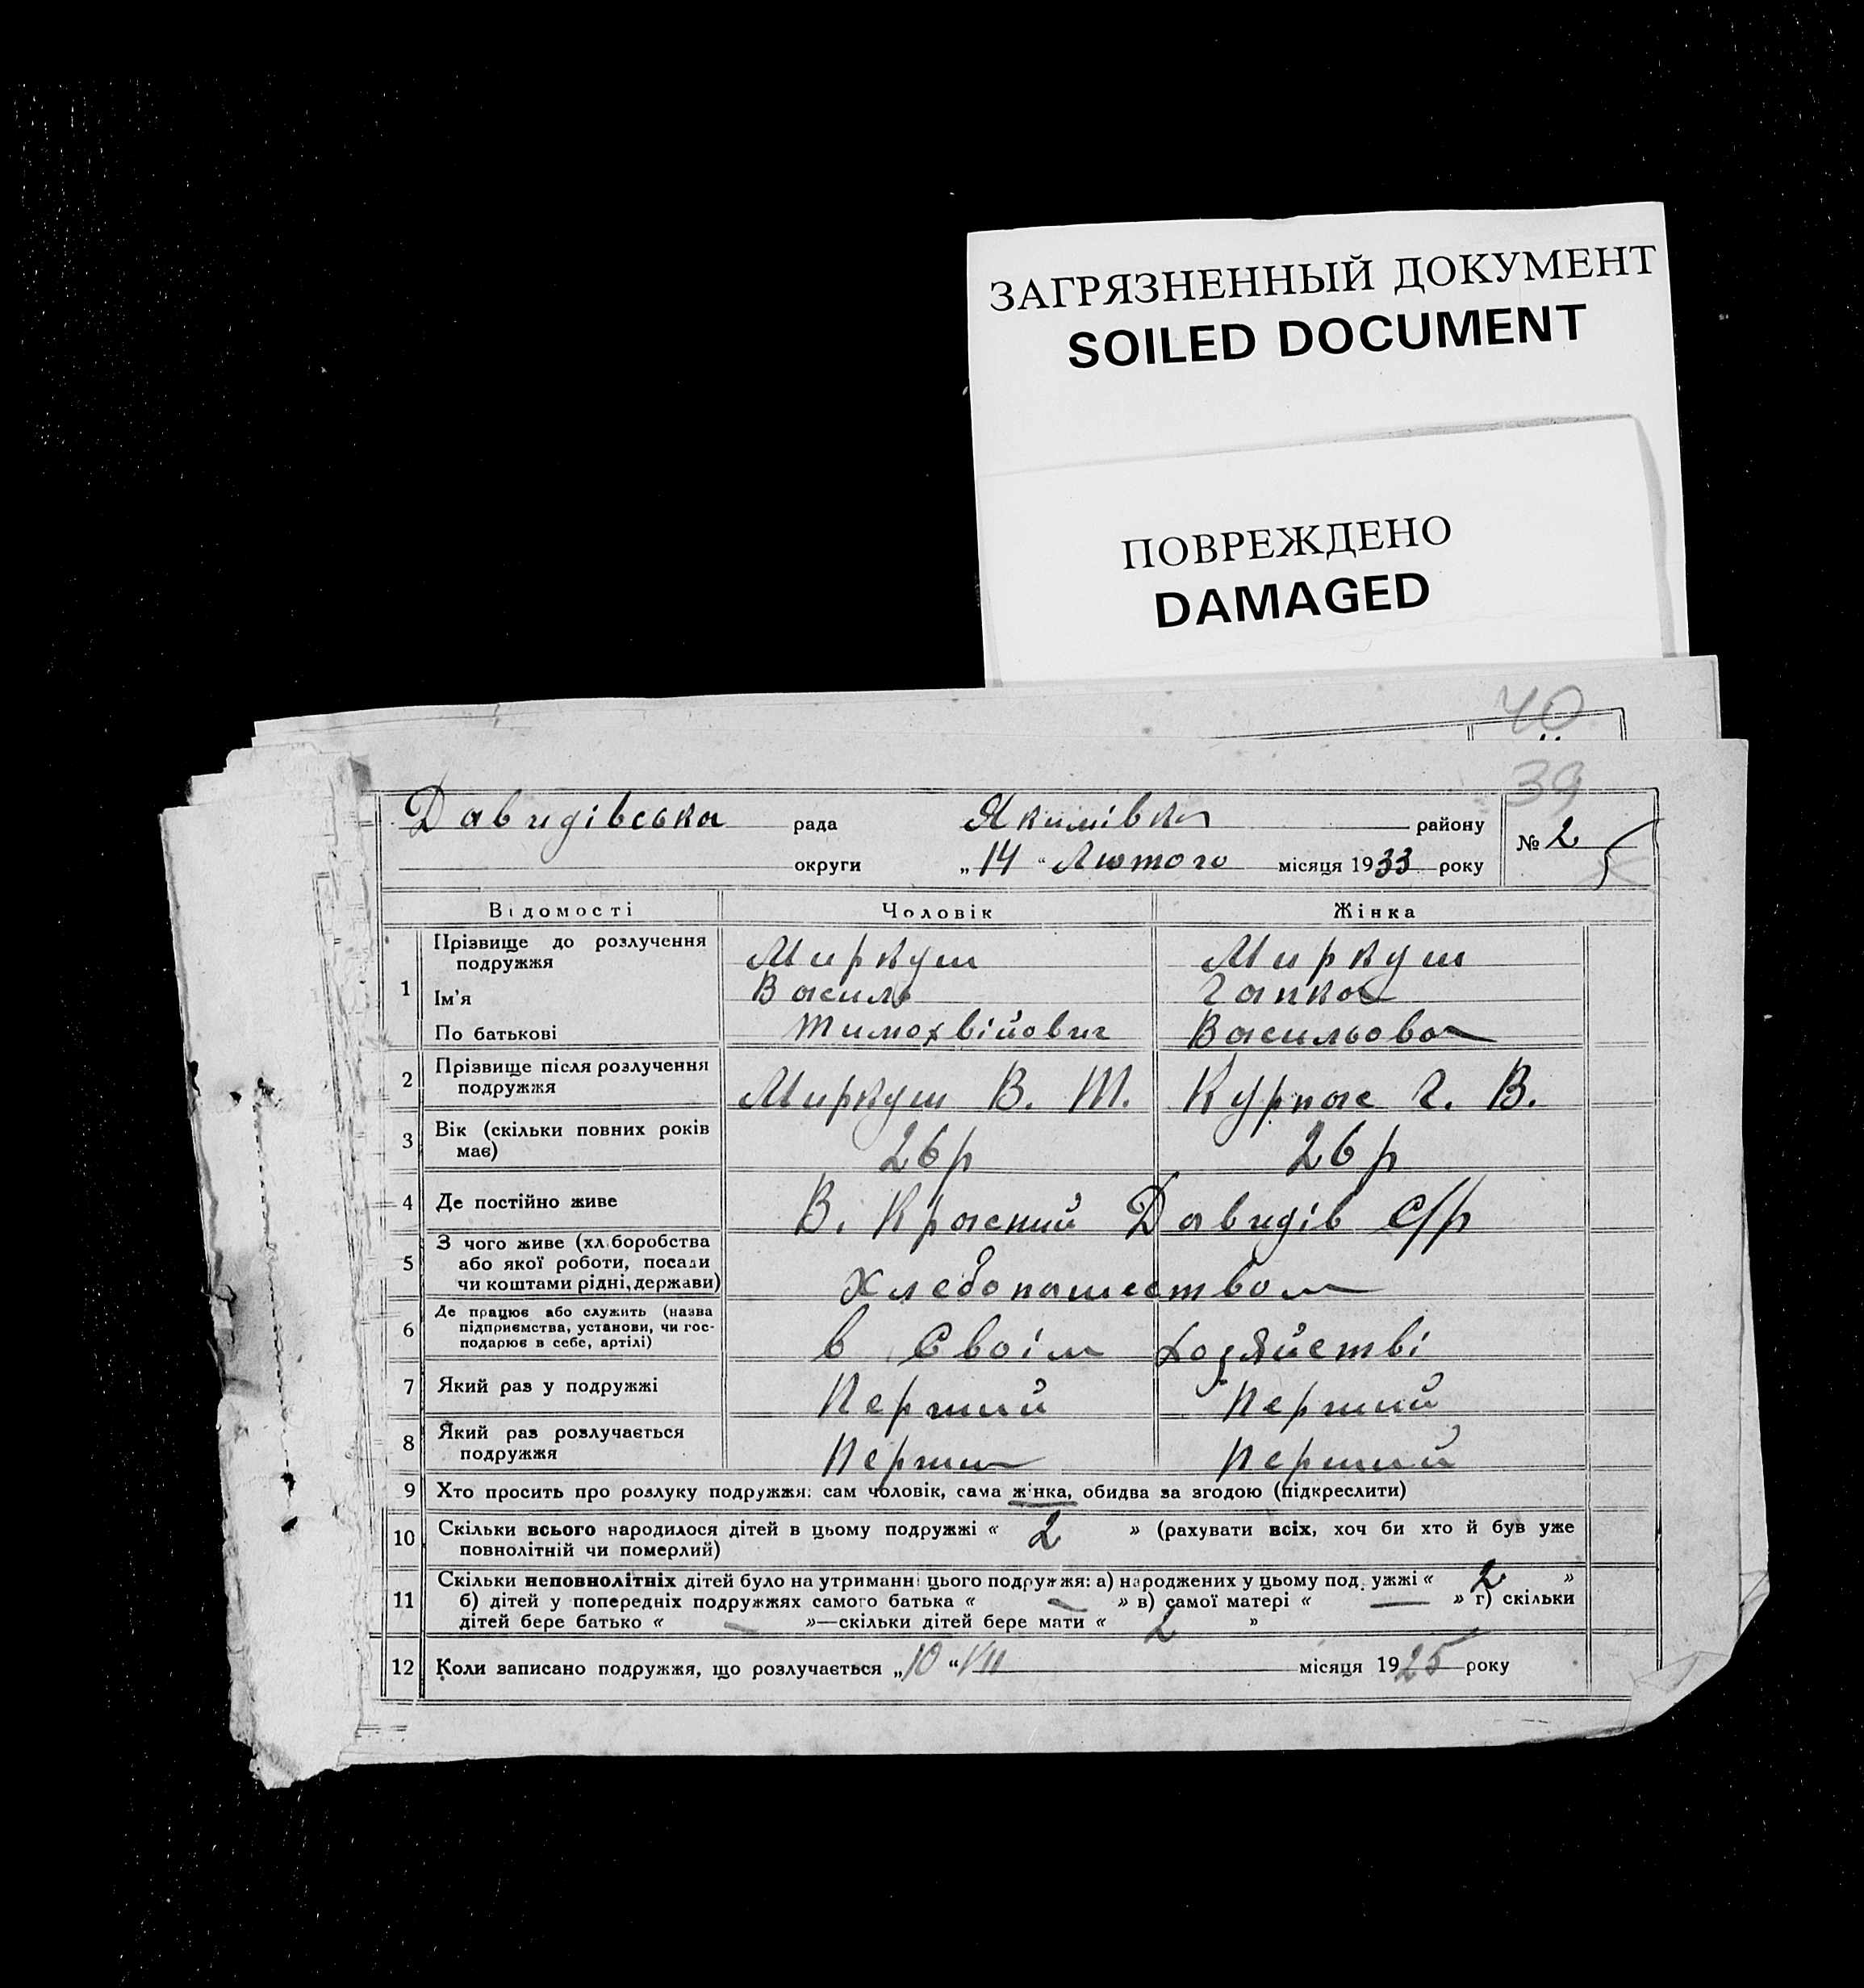 ЗАГРЯЗНЕННЫЙ ДОКУМЕНТ
SOILED DOCUMENT
ПОВРЕЖДЕНО
DAMAGED
40
39
Давидівська рада Якимівка району
округи „ 14 “ Лютого місяця 1933 року
№ 2
Відомості Чоловік Жінка
1 Прізвище до розлучення Миркуш Миркуш
подружжя
Ім'я Василь Гапка
По батькові Тимохвійович Васильова
2 Прізвище після розлучення Миркуш В. Т. Г. В.
подружжя
3 Вік (скільки повних років 26 р 26 р
має)
4 Де постійно живе В. Красний Давидів с/р
5 З чого живе (хл боробства
або якої роботи, посади
чи коштами рідні, держави) Хлебопашеством
6 Де працює або служить (назва
підприємства, установи, чи гос-
подарює в себе, артілі) в своім хозяйстві
7 Який раз у подружжі Перший Перший
8 Який раз розлучається Перши Перший
подружжя
9 Хто просить про розлуку подружжя: сам чоловік, сама жінка, обидва за згодою (підкреслити)
10 Скільки всього народилося дітей в цьому подружжі « 2 » (рахувати всіх, хоч би хто й був уже
повнолітній чи померлий)
11 Скільки неповнолітніх дітей було на утриманні цього подружжя: а) народжених у цьому под ужжі « 2 »
б) дітей у попередніх подружжях самого батька « — » в) самої матері « — » г) скільки
дітей бере батько « — »—скільки дітей бере мати « 2 »
12 Коли записано подружжя, що розлучається „ 10 “ VII місяця 1925 року